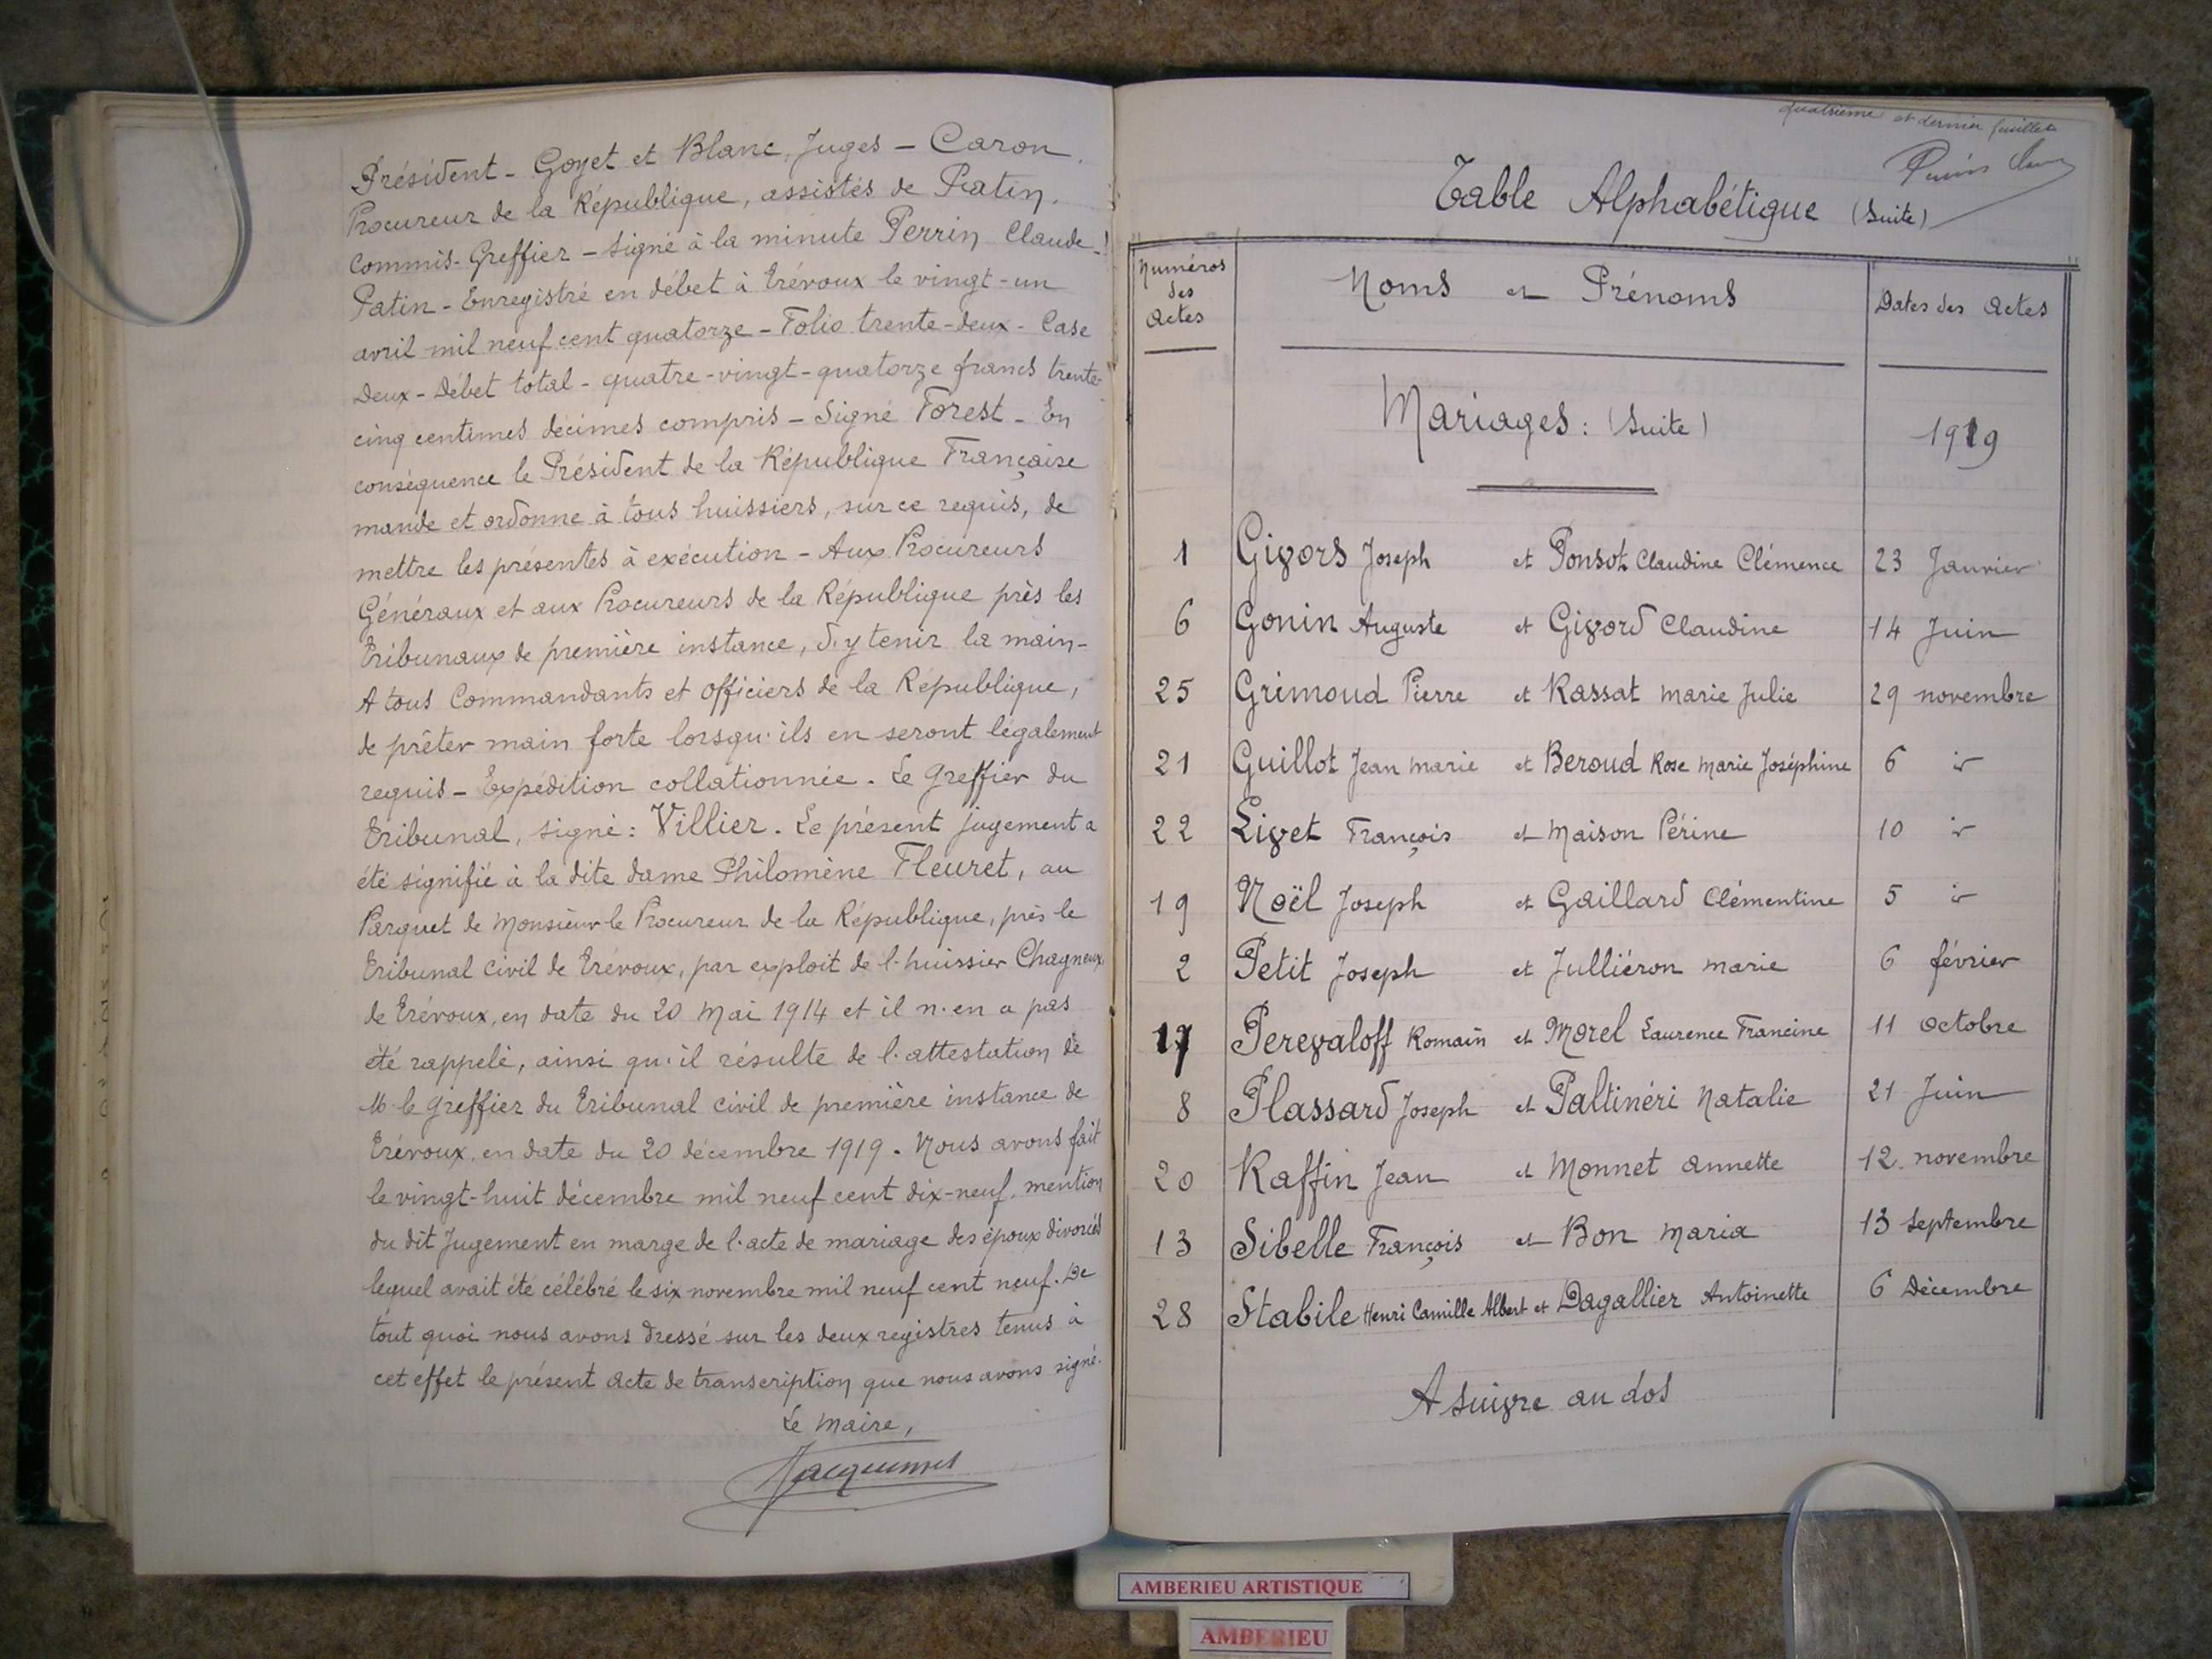 Président - Goyet et Blanc, Juges - Caron.
Procureur de la République, assistés de Patin.
Commis-Greffier - Signé à la minute Perrin Claude -
Patin - Enregistré en débet à Trévoux le vingt-un
avril mil neuf cent quatorze - Folio trente-deux - Case
deux - Débet total - quatre-vingt-quatorze francs trente-
cinq centimes décimes compris - Signé Forest - En
conséquence le Président de la République Française
mande et ordonne à tous huissiers, sur ce requis, de
mettre les présentes à exécution - Aux Procureurs
Généraux et aux Procureurs de la République près les
Tribunaux de première instance, d'y tenir la main -
A tous Commandants et officiers de la République,
de prêter main forte lorsqu'ils en seront légalement
requis - Expédition collationnée. Le Greffier du
Tribunal, signé : Villier. Le présent jugement a
été signifié à la dite dame Philomène Fleuret, au
Parquet de Monsieur le Procureur de la République, près le
Tribunal civil de Trévoux, par exploit de l'huissier Chagneux
de Trévoux, en date du 20 Mai 1914 et il n'en a pas
été rappelé, ainsi qu'il résulte de l'attestation de
M. le Greffier du Tribunal civil de première instance de
Trévoux, en date du 20 décembre 1919. Nous avons fait
le vingt-huit décembre mil neuf cent dix-neuf, mention
du dit Jugement en marge de l'acte de mariage des époux divorcés
lequel avait été célébré le six novembre mil neuf cent neuf. De
tout quoi nous avons dressé sur les deux registres tenus à
cet effet le présent acte de transcription que nous avons signé.
Le Maire,
quatrième et dernier feuillet
Table Alphabétique (Suite)
Numéros des Actes Noms et Prénoms Dates des Actes
Mariages : (Suite) 1919
1 Givors Joseph et Ponsot Claudine Clémence 23 Janvier
6 Gonin Auguste et Givord Claudine 14 Juin
25 Grimoud Pierre et Rassat Marie Julie 29 novembre
21 Guillot Jean Marie et Beroud Rose Marie Joséphine 6 id
22 Livet François et Maison Périne 10 id
19 Noël Joseph et Gaillard Clémentine 5 id
2 Petit Joseph et Julliéron Marie 6 février
17 Perevaloff Romain et Morel Laurence Francine 11 Octobre
8 Plassard Joseph et Paltinéri Natalie 21 Juin
20 Raffin Jean et Monnet Annette 12 novembre
13 Sibelle François et Bon Maria 13 Septembre
28 Stabile Henri Camille Albert et Dagallier Antoinette 6 Décembre
A suivre au dos
AMBERIEU ARTISTIQUE
AMBERIEU